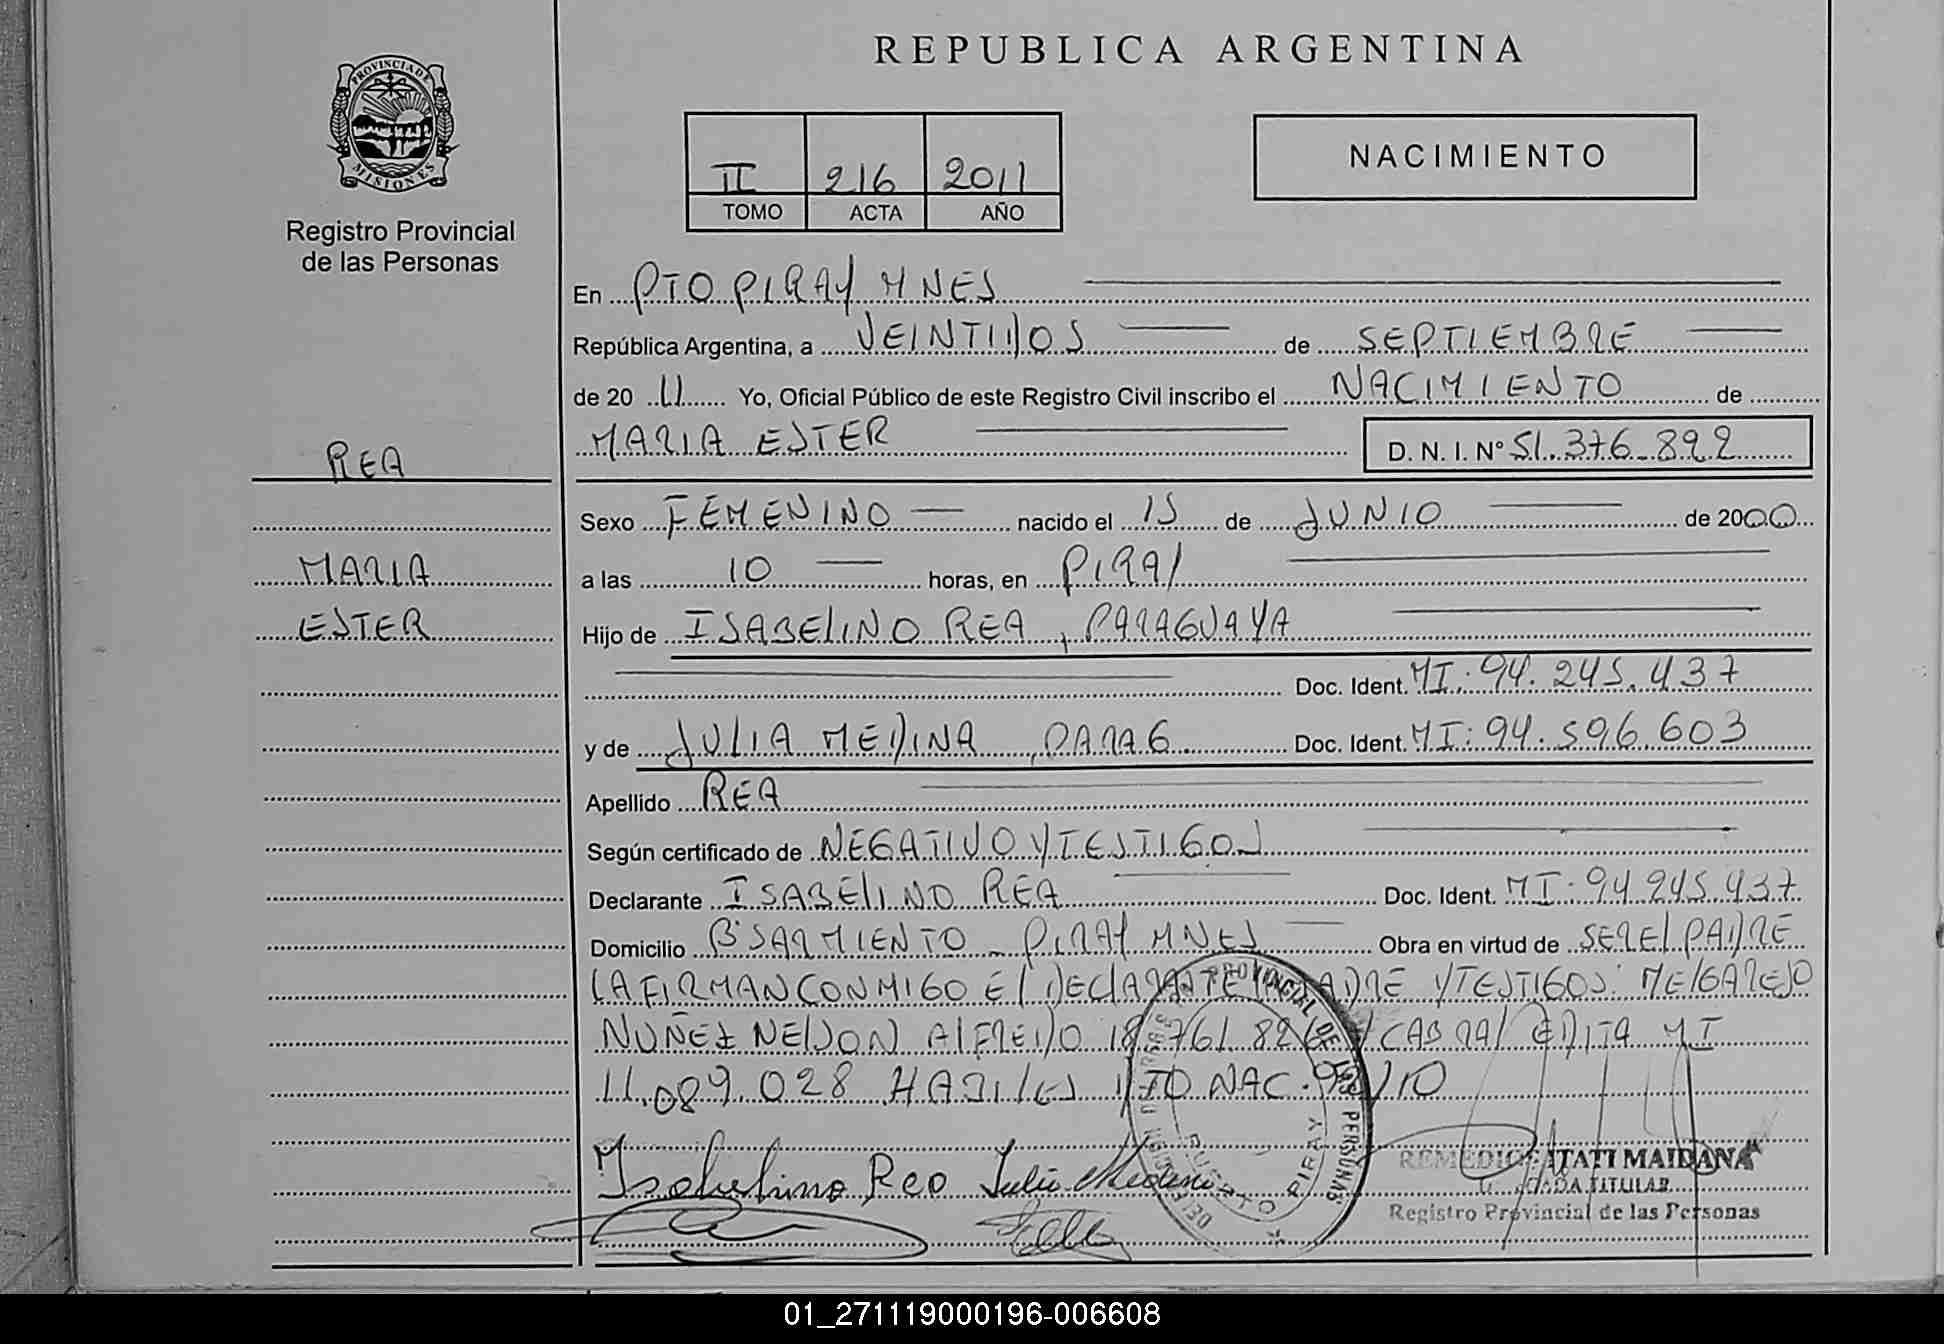 REPUBLICA ARGENTINA
PROVINCIA DE
MISIONES
Registro Provincial
de las Personas
II 216 2011
TOMO ACTA AÑO
NACIMIENTO
En PTO PIRAY MNES
República Argentina, a VEINTIDOS de SEPTIEMBRE
de 2011 Yo, Oficial Público de este Registro Civil inscribo el NACIMIENTO de
MARIA ESTER D. N. I. N° 51.376.892
REA
Sexo FEMENINO nacido el 15 de JUNIO de 2000
MARIA
a las 10 horas, en PIRAY
ESTER
Hijo de ISABELINO REA, PARAGUAYA
Doc. Ident. MI: 94.245.437
y de JULIA MEDINA, PARAG Doc. Ident. MI: 94.596.603
Apellido REA
Según certificado de NEGATIVO Y TESTIGOS
Declarante ISABELINO REA Doc. Ident. MI: 94.245.437
Domicilio Bº SARMIENTO - PIRAY MNES Obra en virtud de SER EL PADRE
LA FIRMAN CONMIGO EL DECLARANTE MADRE Y TESTIGOS: MELGAREJO
NUÑEZ NELSON ALFREDO 18.761.82 Y CABRAL EDITA MI
11.089.028 HABILES DTO NAC. /10
Isabelino Reo Julia Medina
REMEDIOS ITATI MAIDANA
TITULAR
Registro Provincial de las Personas
PROVINCIAL DE LAS PERSONAS
PIRAY
01_271119000196-006608